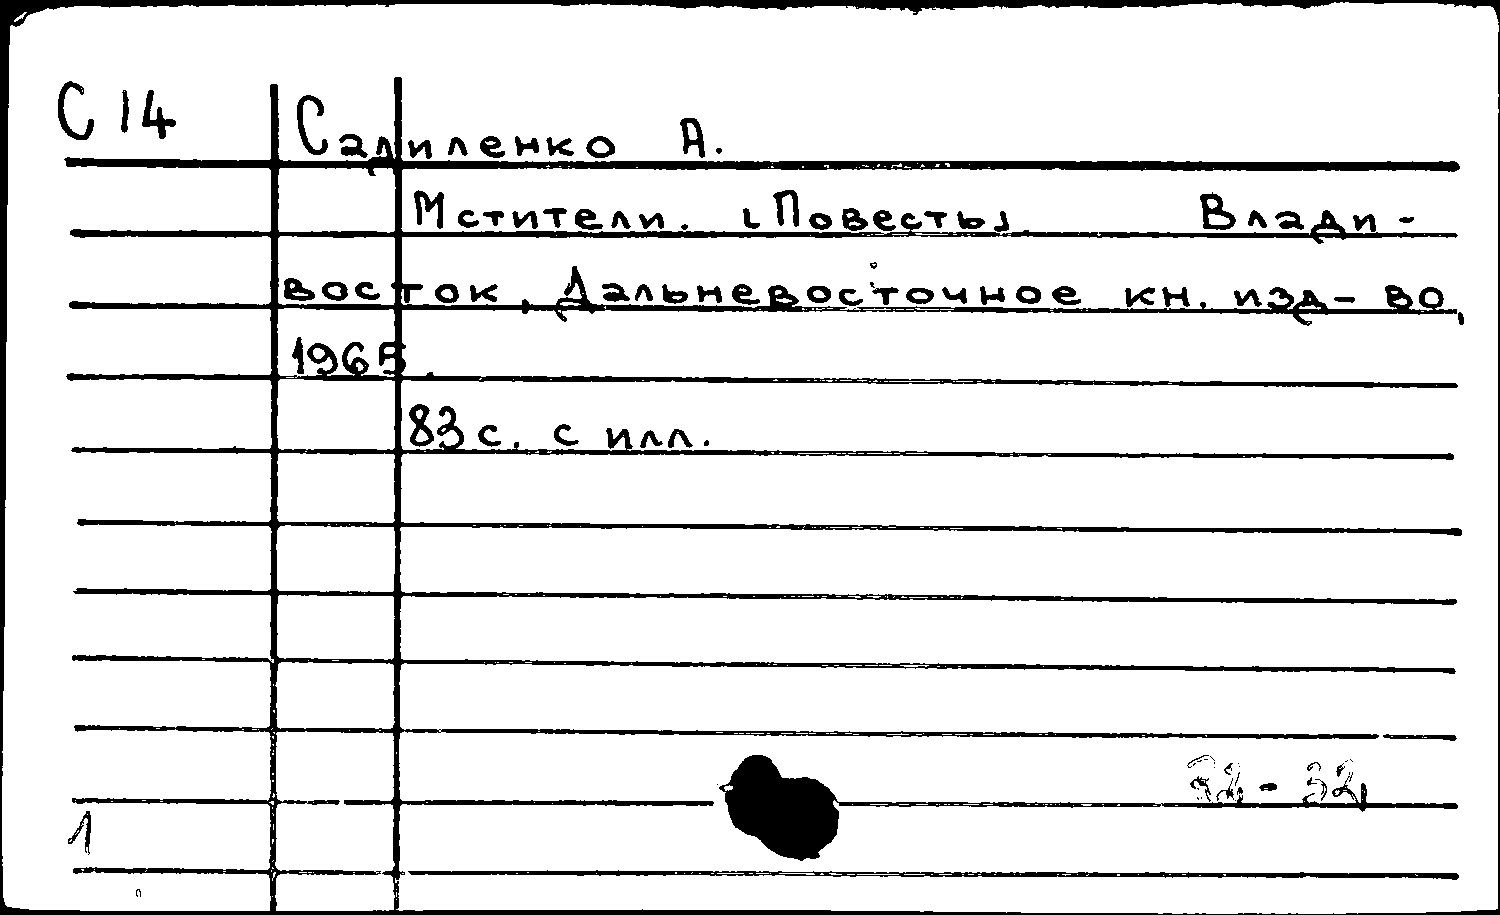 С 14
Садиленко А.
Мстители. [Повесть] Влади-
восток, Дальневосточное кн. изд-во,
1965.
83 с. с илл.
1